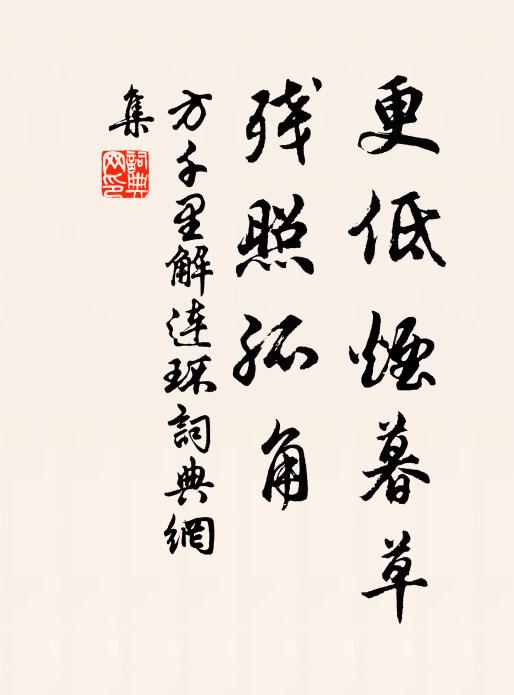 更低煙暮草
残照孤角
方千里解連环詞典網
集
詞典网印